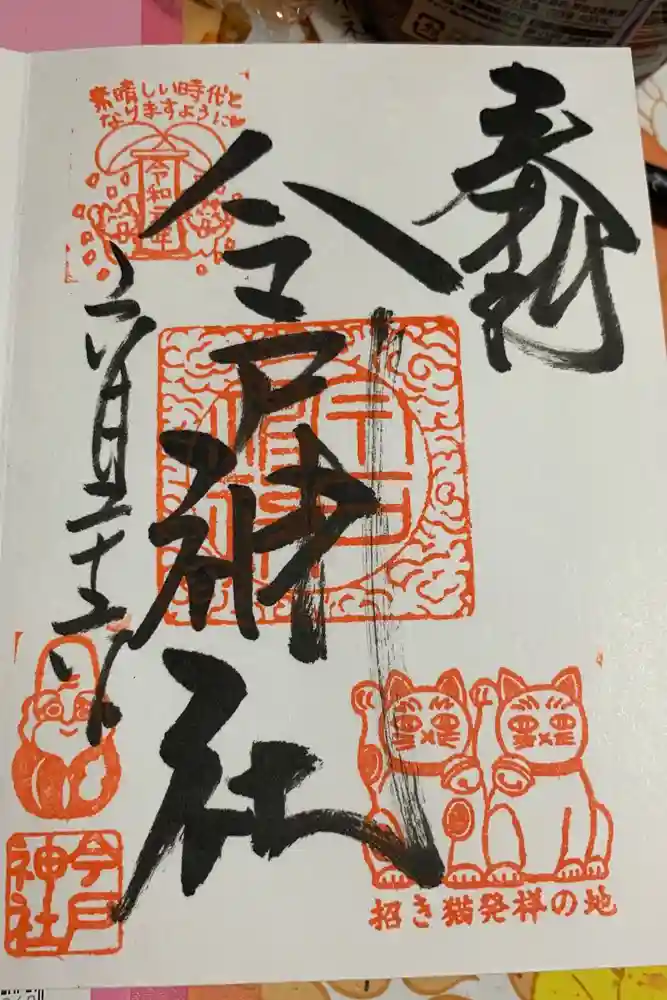 奉拝
素晴しい時代と
なりますように♥
令和元年
今戸神社
六月二十二日
今戸
神社
招き猫発祥の地